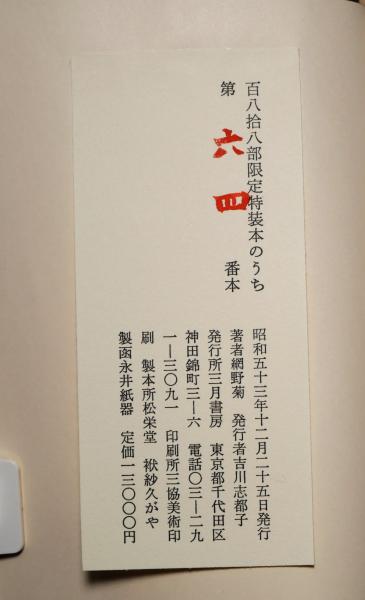 百八拾八部限定特装本のうち
第 六四 番本
昭和五十三年十二月二十五日発行
著者網野菊 発行者吉川志都子
発行所三月書房 東京都千代田区
神田錦町三―六 電話〇三―二九
一―三〇九一 印刷所三協美術印
刷 製本所松栄堂 袱紗久がや
製函永井紙器 定価一三〇〇〇円